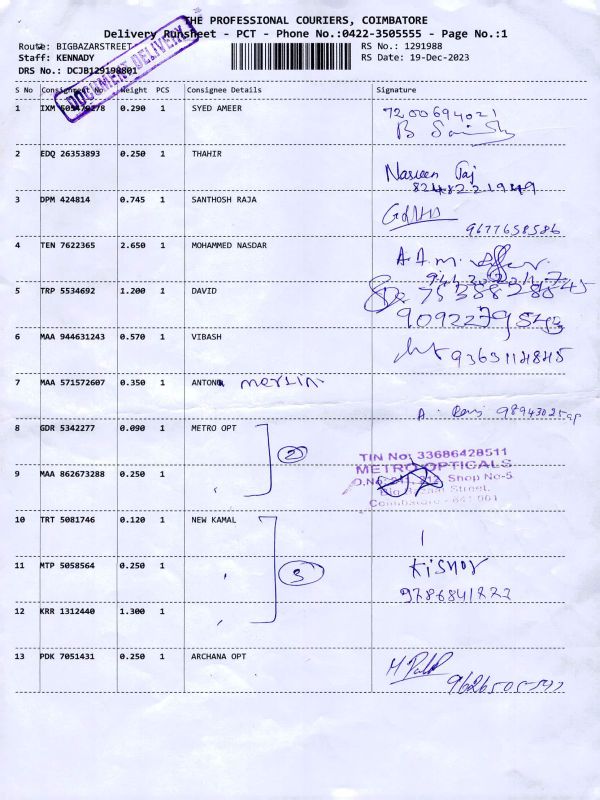 THE PROFESSIONAL COURIERS, COIMBATORE
Delivery Runsheet - PCT - Phone No.:0422-3505555 - Page No.:1
Route: BIGBAZARSTREET
RS No.: 1291988
Staff: KENNADY
RS Date: 19-Dec-2023
DRS No.: DCJB129198801
DOCUMENT DELIVERY
S No Consignment No Weight PCS Consignee Details Signature
1 IXM 0.290 1 SYED AMEER
7200694021
B
2 EDQ 26353893 0.250 1 THAHIR
Nasreen Taj
8248221949
3 DPM 424814 0.745 1 SANTHOSH RAJA
9677658586
4 TEN 7622365 2.650 1 MOHAMMED NASDAR
A.A.M.
5 TRP 5534692 1.200 1 DAVID
6 MAA 944631243 0.570 1 VIBASH
7 MAA 571572607 0.350 1 ANTONY mersin
A.
8 GDR 5342277 0.090 1 METRO OPT
2
TIN No: 33686428511
METRO OPTICALS
Shop No-5
Street,
Coimbatore - 641 001
9 MAA 862673288 0.250 1
10 TRT 5081746 0.120 1 NEW KAMAL
11 MTP 5058564 0.250 1
3
Kishor
12 KRR 1312440 1.300 1
13 PDK 7051431 0.250 1 ARCHANA OPT